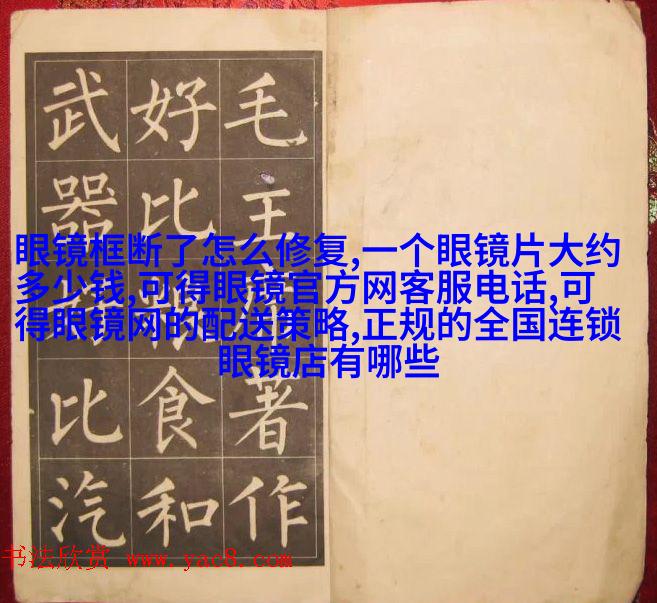 毛主著作
好比食和
武器比汽
眼镜框断了怎么修复,一个眼镜片大约
多少钱,可得眼镜官方网客服电话,可
得眼镜网的配送策略,正规的全国连锁
眼镜店有哪些
书法欣赏 www.yac8.com